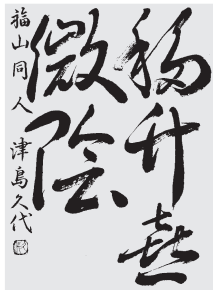 移竹喜
微陰
福山同人 津島久代